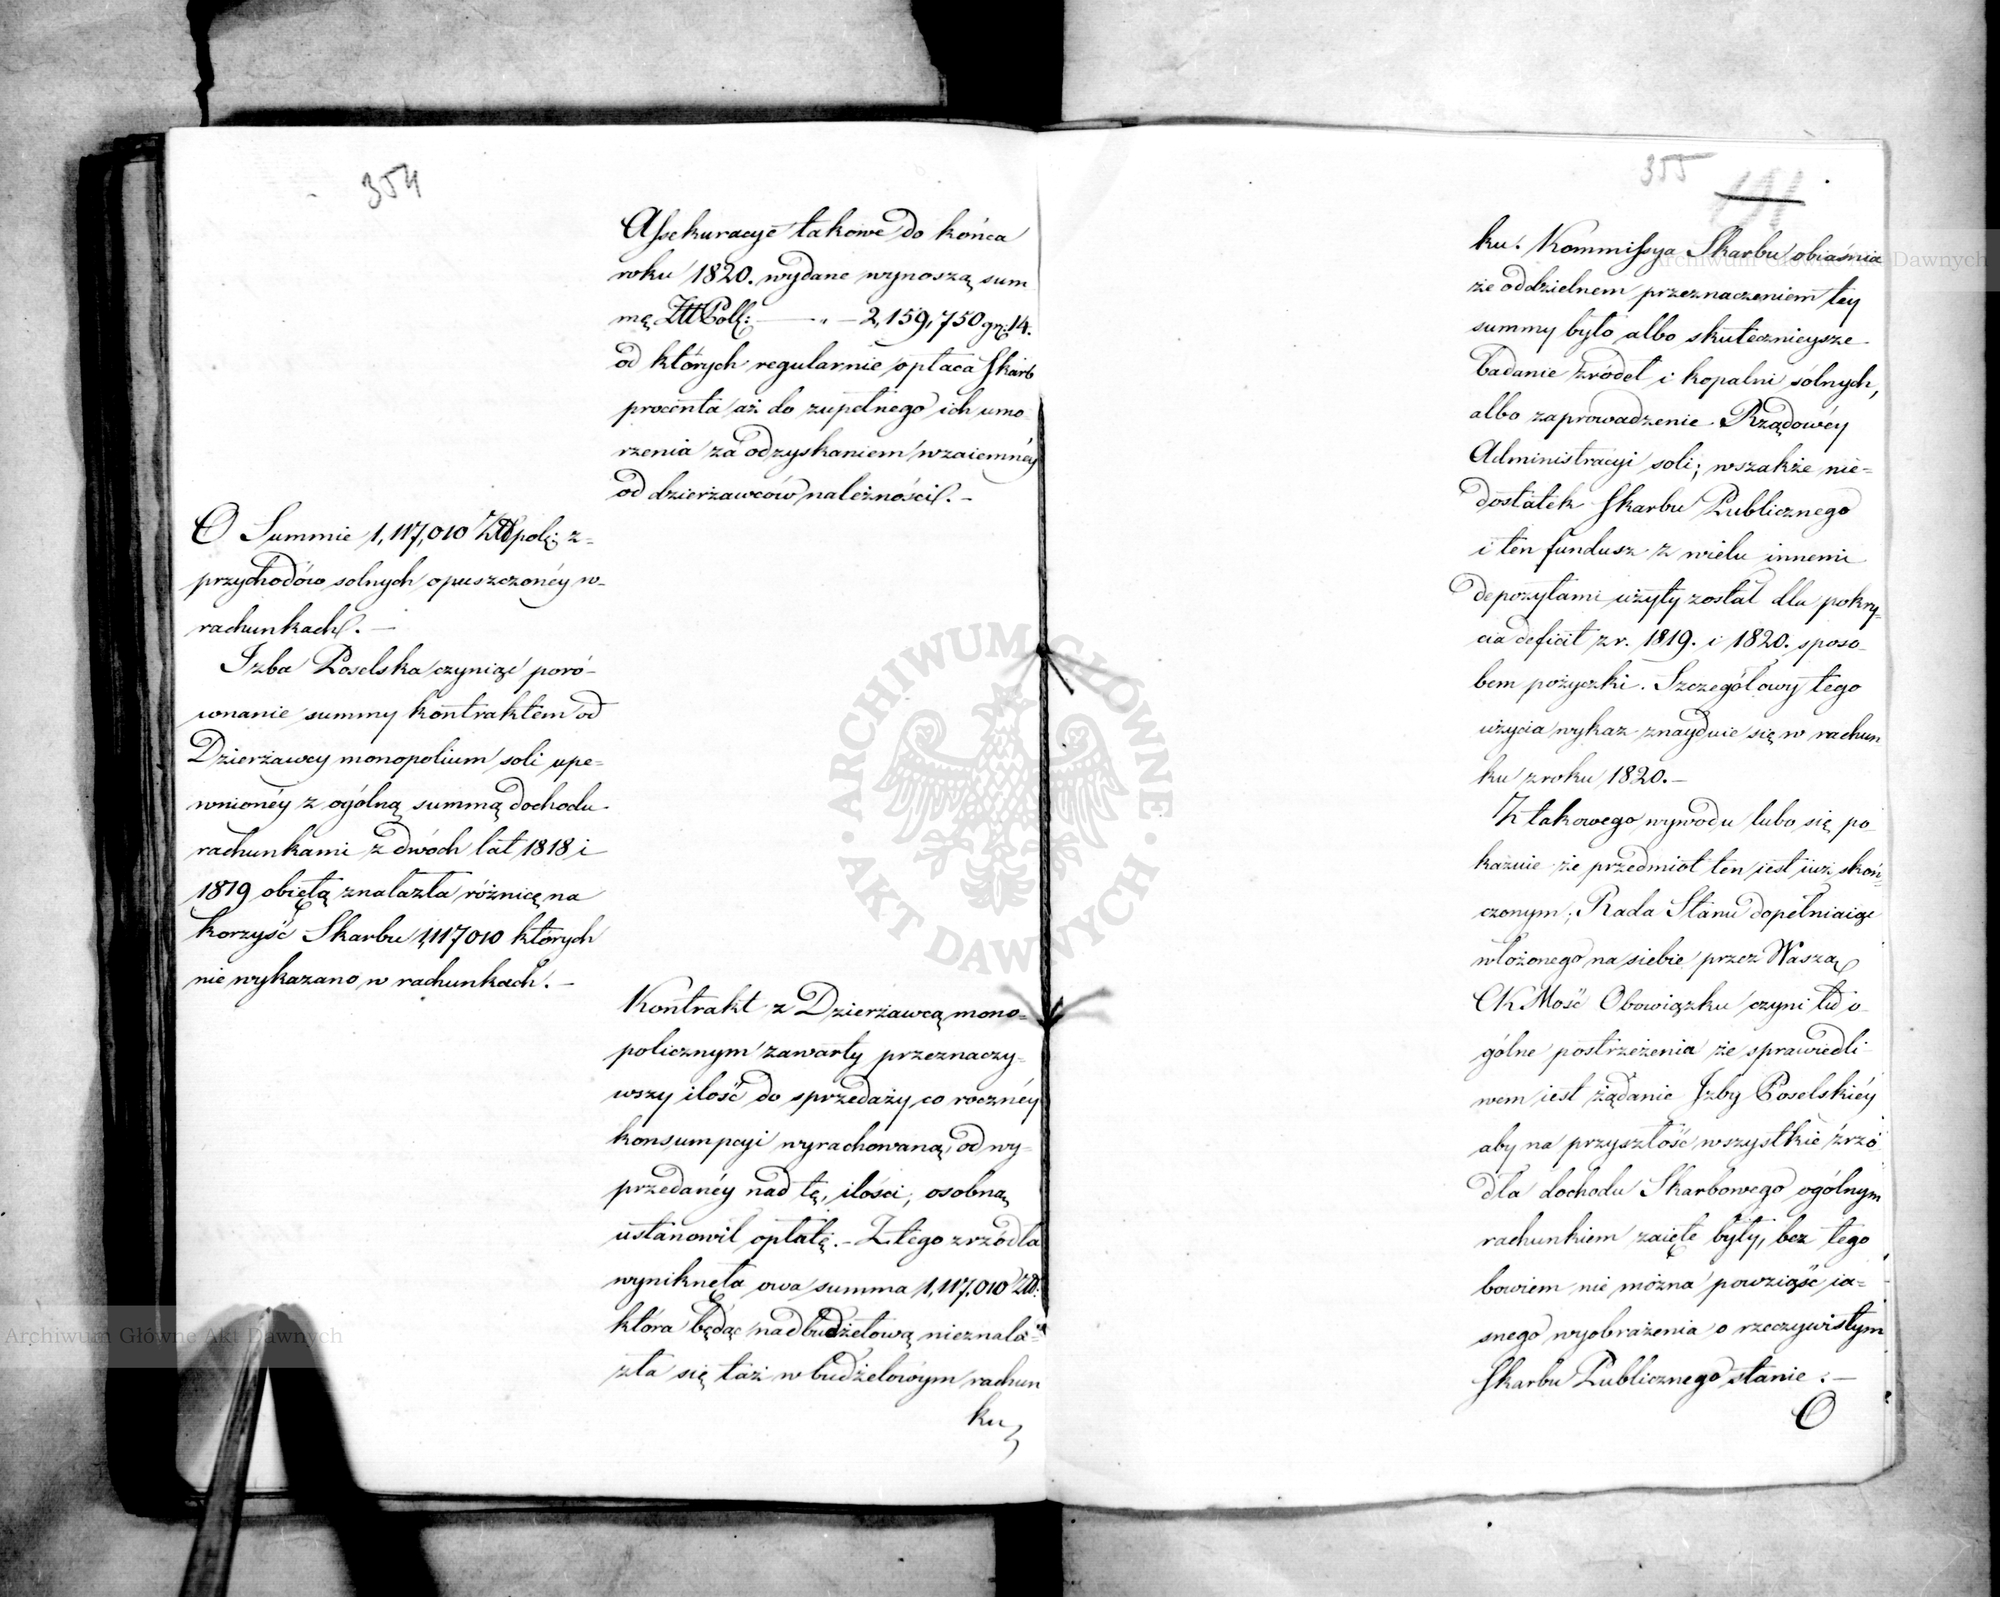 354
Assekuracye takowe do końca
roku 1820. wydane wynoszą sum
mę ZłtPols: — " — 2,159,750 gr: 14.
od których regularnie opłaca Skarb
procenta aż do zupełnego ich umo
rzenia za odzyskaniem wzaiemnéy
od dzierżawców należności. –
O Summie 1,117,010 Złtpols: z-
przychodów solnych opuszczonéy w-
rachunkach. –
Izba Poselska czyniąc poró-
wnanie summy kontraktem od
Dzierżawcy monopolium soli upe-
wnionéy z ogólną summą dochodu
rachunkami z dwóch lat 1818 i
1819 obiętą znalazła różnicę na
korzyść Skarbu 1,117010 których
nie wykazano w rachunkach. –
Kontrakt z Dzierżawcą mono-
policznym zawarty przeznaczy-
wszy ilość do sprzedaży co rocznéy
konsumpcyi wyrachowaną, od wy-
przedanéy nad tę, ilości, osobną
ustanowił opłatę. – Z tego zrzódła
wyniknęła owa summa 1,117,010 Złt.
która będąc nadbudżetową nieznala-
zła się też w budżetowym rachun
ku
355
191
ku. Kommissya Skarbu obiaśnia
że oddzielnem przeznaczeniem tey
summy było albo skutecznieysze
badanie źródeł i kopalni sólnych,
albo zaprowadzenie Rządowéy
Administracyi soli; wszakże nie-
dostatek Skarbu Publicznego
i ten fundusz z wielu innemi
depozytami użyty został dla pokry-
cia deficit z r. 1819. i 1820. sposo-
bem pożyczki. Szczegółowy tego
użycia wykaz znayduie się w rachun
ku z roku 1820. –
Z takowego wywodu lubo się po
kazuie że przedmiot ten iest iuż skoń-
czonym, Rada Stanu dopełniaiąc
włożonego na siebie przez Waszą
CKMość Obowiązku czyni tu o-
gólne postrzeżenia że sprawiedli
wem iest żądanie Izby Poselskiéy
aby na przyszłość wszystkie źrzó
dła dochodu Skarbowego ogólnym
rachunkiem zaięte były, bez tego
bowiem nie można powziąść ia-
snego wyobrażenia o rzeczywistym
Skarbu Publicznego stanie. –
O
ARCHIWUM GŁÓWNE · AKT DAWNYCH ·
Archiwum Główne Akt Dawnych
Archiwum Główne Akt Dawnych